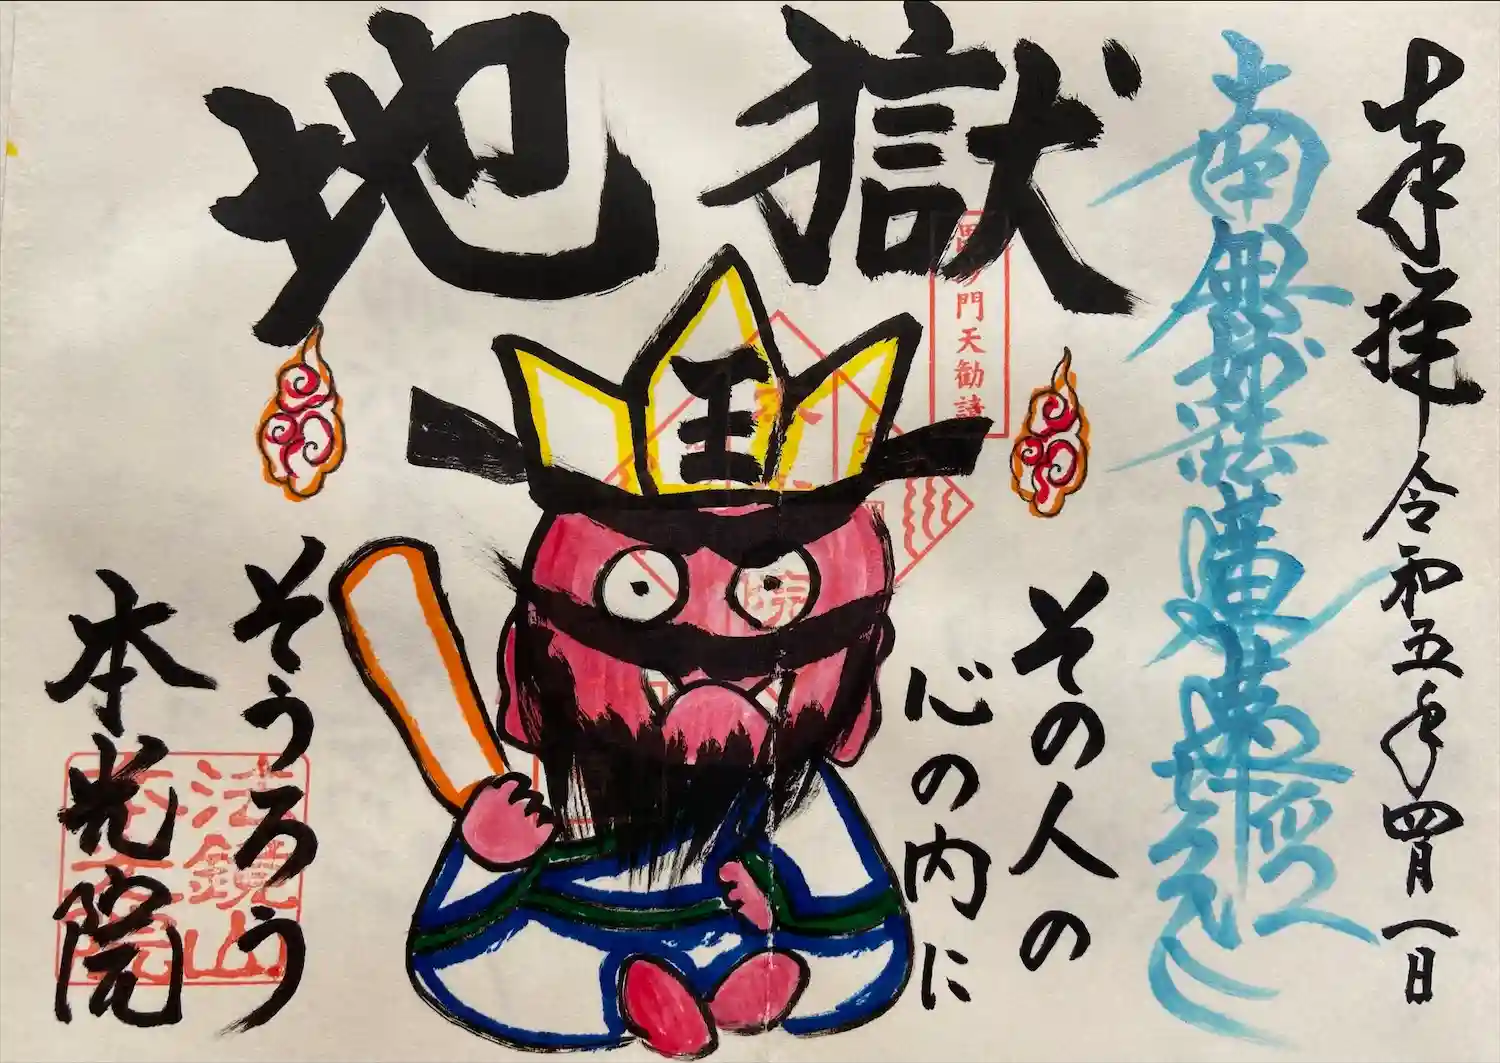 奉拝 令和五年四月一日
南無妙法蓮華経
地獄
毘沙門天勧請
王
その人の
心の内に
そうろう
本光院
法鏡山
本光院